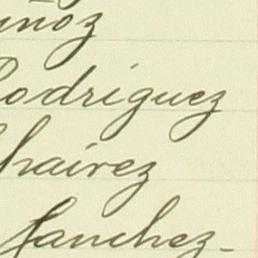 uñoz
Rodriguez
Chairez
Sanchez-